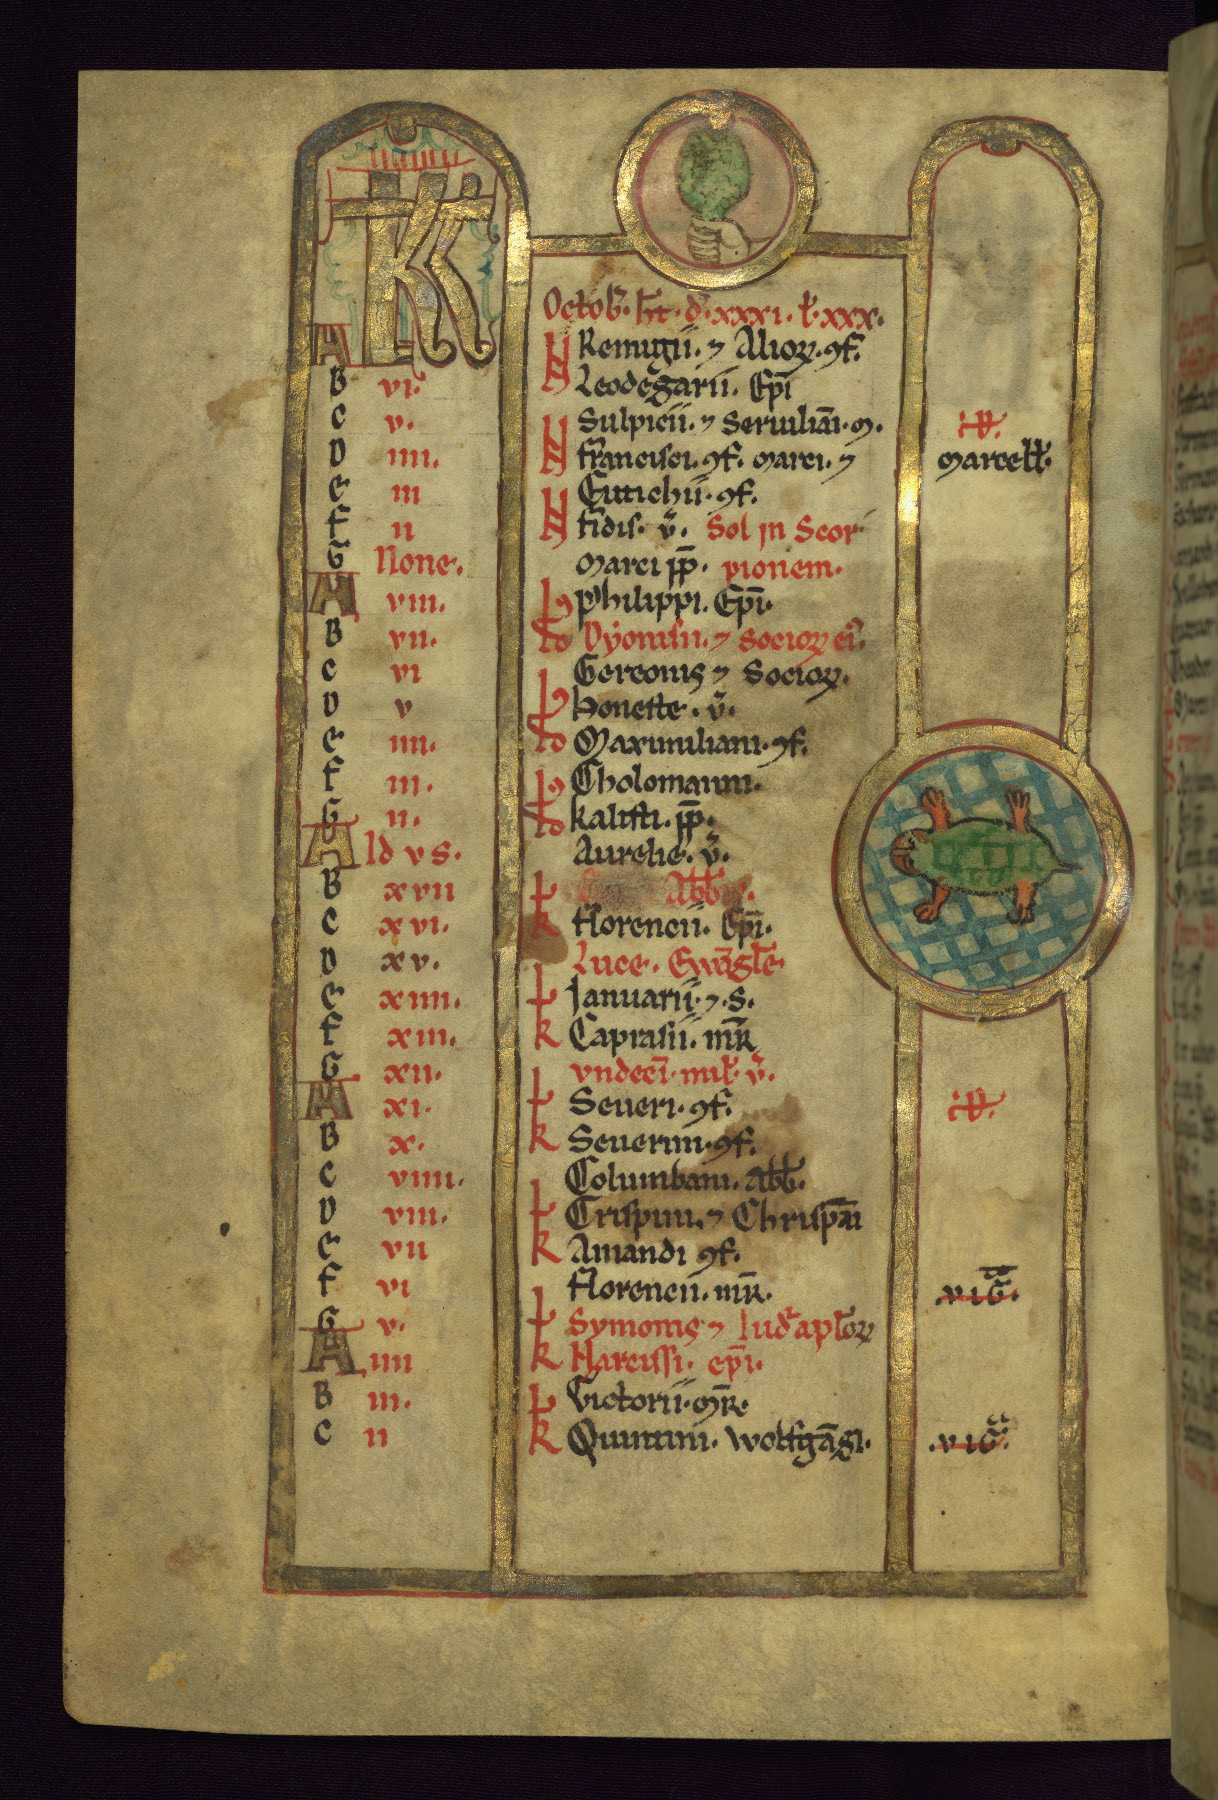 KL
Octob̄. h̄t. d̄. xxxi. l̄. xxx.
A N Remigii. ⁊ Alioꝝ. ꝯf.
B vi. N Leodegarii. Ep̄i
C v. N Sulpicii. ⁊ Seruiliāi. m.
D iiii. N francisci. ꝯf. marci. ⁊ marcell̄.
E iii N Euticihii. ꝯf.
F ii N fidis. v̄. Sol in Scor
G None. marci pp̄. pionem.
A viii. Philippi. Ep̄i.
B vii. Dyonisii. ⁊ Socioꝝ ei᷒.
C vi Gereonis ⁊ Socioꝝ.
D v honeste. v̄.
E iiii. Maximiliani. ꝯf.
F iii. Cholomanni.
G ii. kalisti. pp̄.
A Idvs. Aurelie. v̄.
B xvii Abb̄
C xvi. k florencii. Ep̄i.
D xv. Luce. Ewāgl̄e
E xiiii. Januarii. ⁊. s.
F xiii. k Caprasii. mr̄
G xii. vndecī. mil̄. v̄.
A xi. Seueri. ꝯf.
B x. k Seuerini. ꝯf.
C viiii. Columbani. abb̄.
D viii. Crispini. ⁊ Chrispāi
E vii k Amandi ꝯf.
F vi florencii. mr̄. .vig̅.
G v. Symonis ⁊ Iud̄ apl̄oꝝ
A iiii k Narcissi. ep̄i.
B iii. Victorii. mr̄.
C ii k Quintini. wolfgāgi. .vig̅.